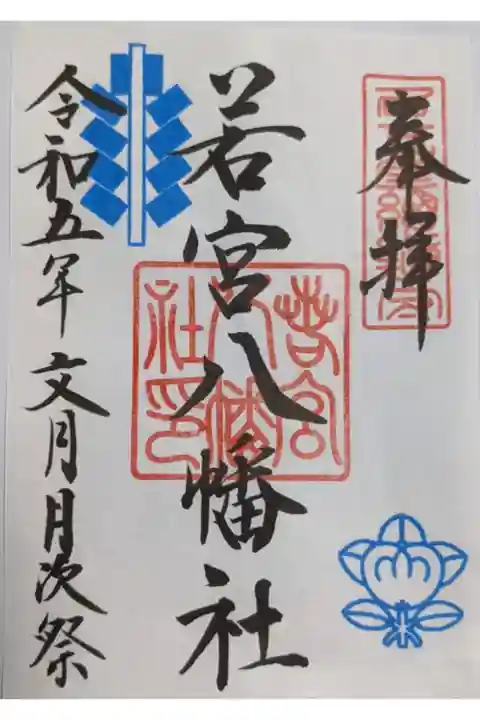 奉拝
若宮八幡社
若宮八幡社印
令和五年 文月月次祭